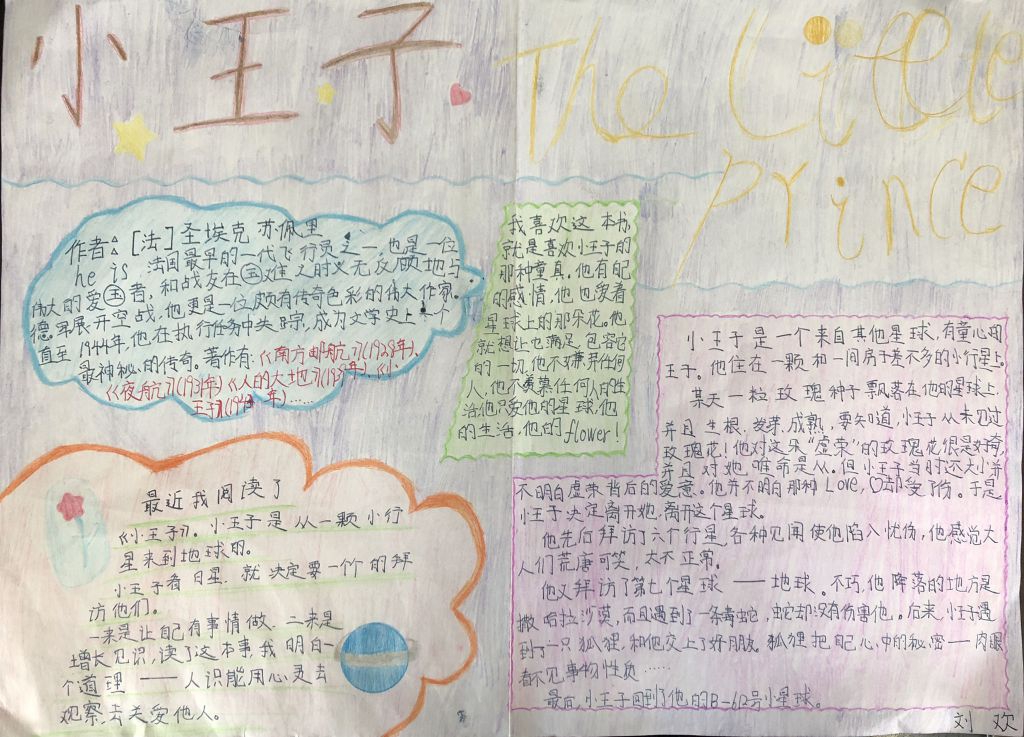 小王子
The Little
Prince
作者：[法]圣埃克苏佩里
he is 法国最早的一代飞行员之一，也是一位
伟大的爱国者，和战友在国难之时义无反顾地与
德军展开空战，他更是一位颇有传奇色彩的伟大作家。
直至1944年，他在执行任务中失踪，成为文学史上 个
最神秘的传奇。著作有：《南方邮航》(1928年)、
《夜航》(1931年)《人的大地》(1939年)、《小
王子》(1943年)……
我喜欢这本书
就是喜欢小王子的
那种童真。他有自己
的感情，他也爱着
星球上的那朵花。他
就想让也满足，包容它
的一切，他不对嫌弃任何
人，他不羡慕任何人的生
活他只爱他的星球，他
的生活，他的flower！
小王子是一个来自其他星球，有童心的
王子。他住在一颗和一间房子差不多的小行星上。
某天一粒玫瑰种子飘落在他的星球上，
并且生根、发芽、成熟，要知道，小王子从未见过
玫瑰花！他对这朵“虚荣”的玫瑰花很是好奇，
并且对她，唯命是从。但小王子当时还太小并
不明白虚荣背后的爱意。他并不明白那种Love，♡却受了伤。于是
小王子决定离开她，离开这个星球。
他先后拜访了六个行星，各种见闻使他陷入忧伤，他感觉大
人们荒唐可笑，太不正常。
他又拜访了第七个星球——地球。不巧，他降落的地方是
撒哈拉沙漠，而且遇到了一条毒蛇，蛇却没有伤害他。后来，小王子遇
到了一只狐狸，和他交上了好朋友，狐狸把自己心中的秘密——肉眼
看不见事物性质……
最后，小王子回到了他的B-612号小星球。
最近我阅读了
《小王子》。小王子是从一颗小行
星来到地球的。
小王子看日星，就决定要一个个的拜
访他们。
一来是让自己有事情做，二来是
增长见识，读了这本事，我明白一
个道理——人识能用心灵去
观察，去关爱他人。
刘欢